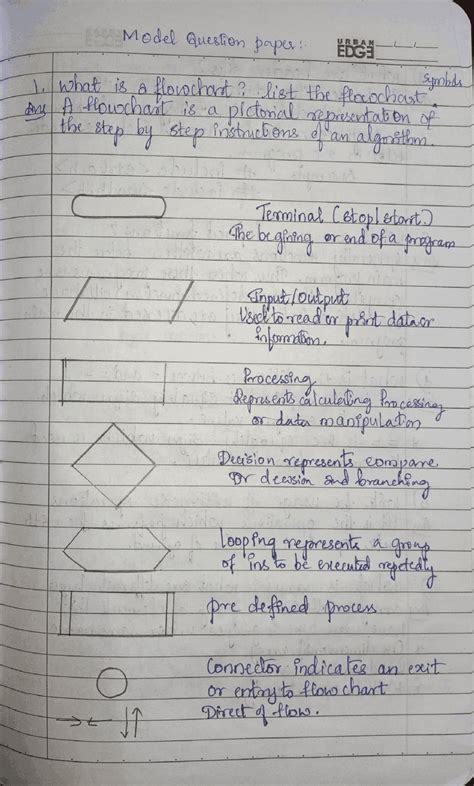 Model Question paper:
URBAN
EDGE
Symbols
1. What is a flowchart? list the flowchart.
Ans A flowchart is a pictorial representation of
the step by step instructions of an algorithm.
Terminal (stop/start.)
The begining or end of a program
Input/Output
Used to read or print data or
information.
Processing
Represents calculating Processing
or data manipulation
Decision represents compare
or decision and branching
Looping represents a group
of ins to be executed repetedly
pre defined process
Connector indicates an exit
or entry to flow chart
Direct of flow.